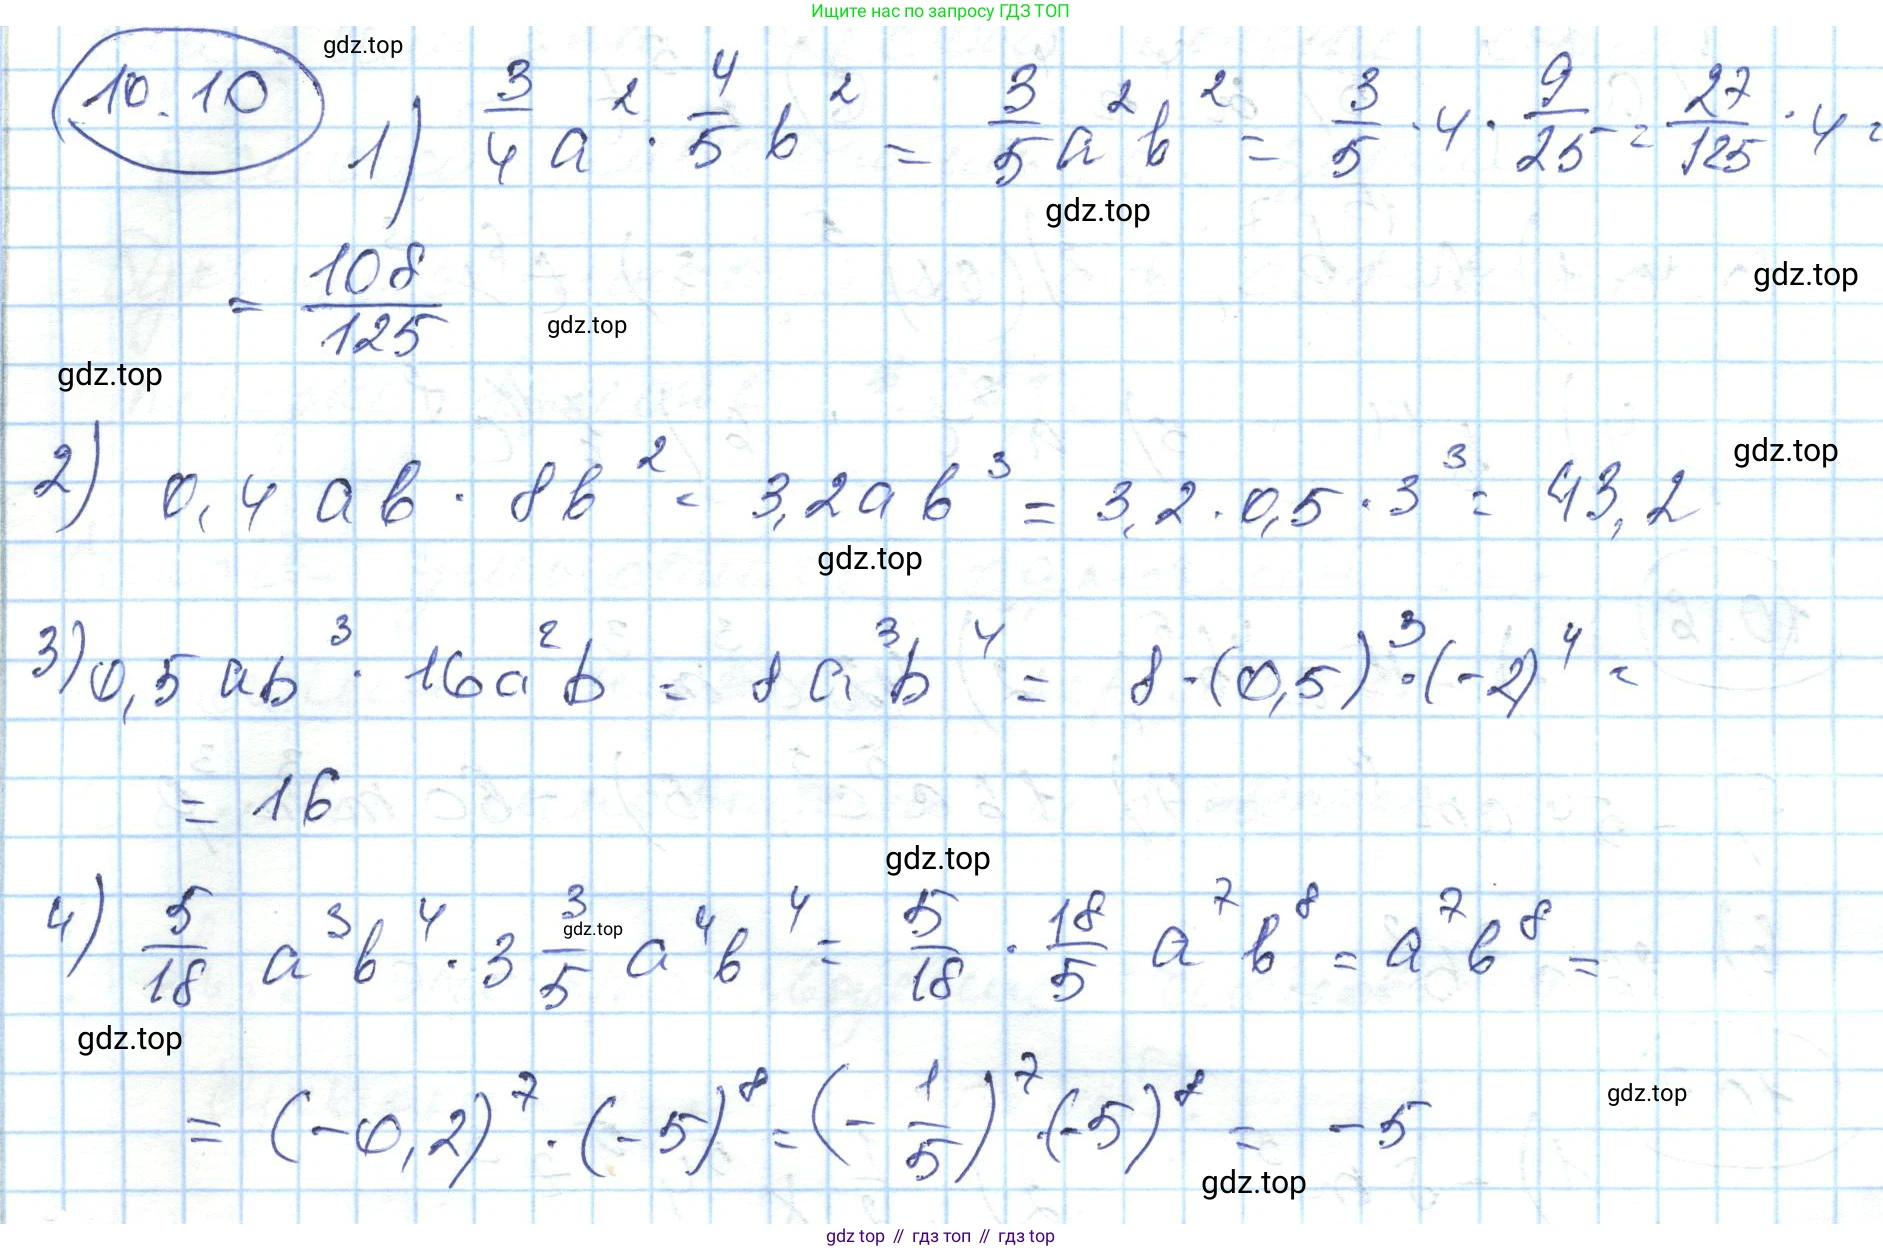 Ищите нас по запросу ГДЗ ТОП
10.10 gdz.top
1) 3/4 a² · 4/5 b² = 3/5 a² b² = 3/5 · 4 · 9/25 = 27/125 · 4 =
gdz.top
= 108/125 gdz.top gdz.top
gdz.top
2) 0,4 ab · 8b² = 3,2 a b³ = 3,2 · 0,5 · 3³ = 43,2 gdz.top
gdz.top
3) 0,5 ab³ · 16a²b = 8a³b⁴ = 8 · (0,5)³ · (-2)⁴ =
= 16
gdz.top
4) 5/18 a³b⁴ · 3 3/5 a⁴b⁴ = 5/18 · 18/5 a⁷b⁸ = a⁷b⁸ =
gdz.top
gdz.top
= (-0,2)⁷ · (-5)⁸ = (-1/5)⁷ · (-5)⁸ = -5
gdz.top
gdz.top
gdz top // гдз топ // гдз top